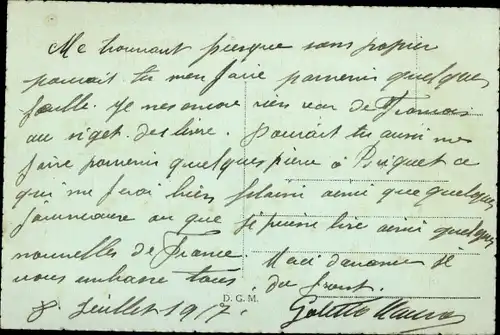 Me trouvant presque sans papier
pourait tu men faire parvenir quelques
feuille. Je nes encore rien reçu de Francois
au sujet des livre. Pourait tu aussi me
faire parvenir quelques pierre a Briquet ce
qui me ferai bien plaisir ainsi que quelques
journeaux ou que je puisse lire ainsi quelques
nouvelles de France. Merci d'avance je
vous embrasse tous. du front.
8 Juillet 1917.
D. G. M.